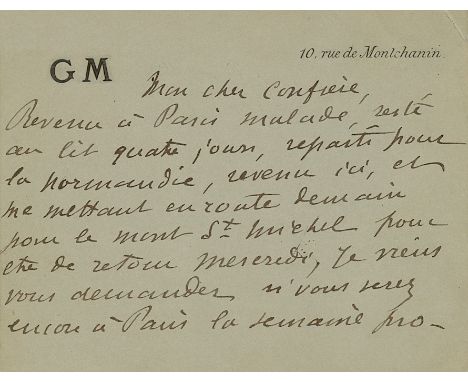 GM
10, rue de Montchanin.
Mon cher Confrère,
Revenu à Paris malade, resté
au lit quatre jours, reparti pour
la Normandie, revenu ici, et
me mettant en route demain
pour le mont St Michel pour
etre de retour mercredi, je viens
vous demander si vous serez
encore à Paris la semaine pro-